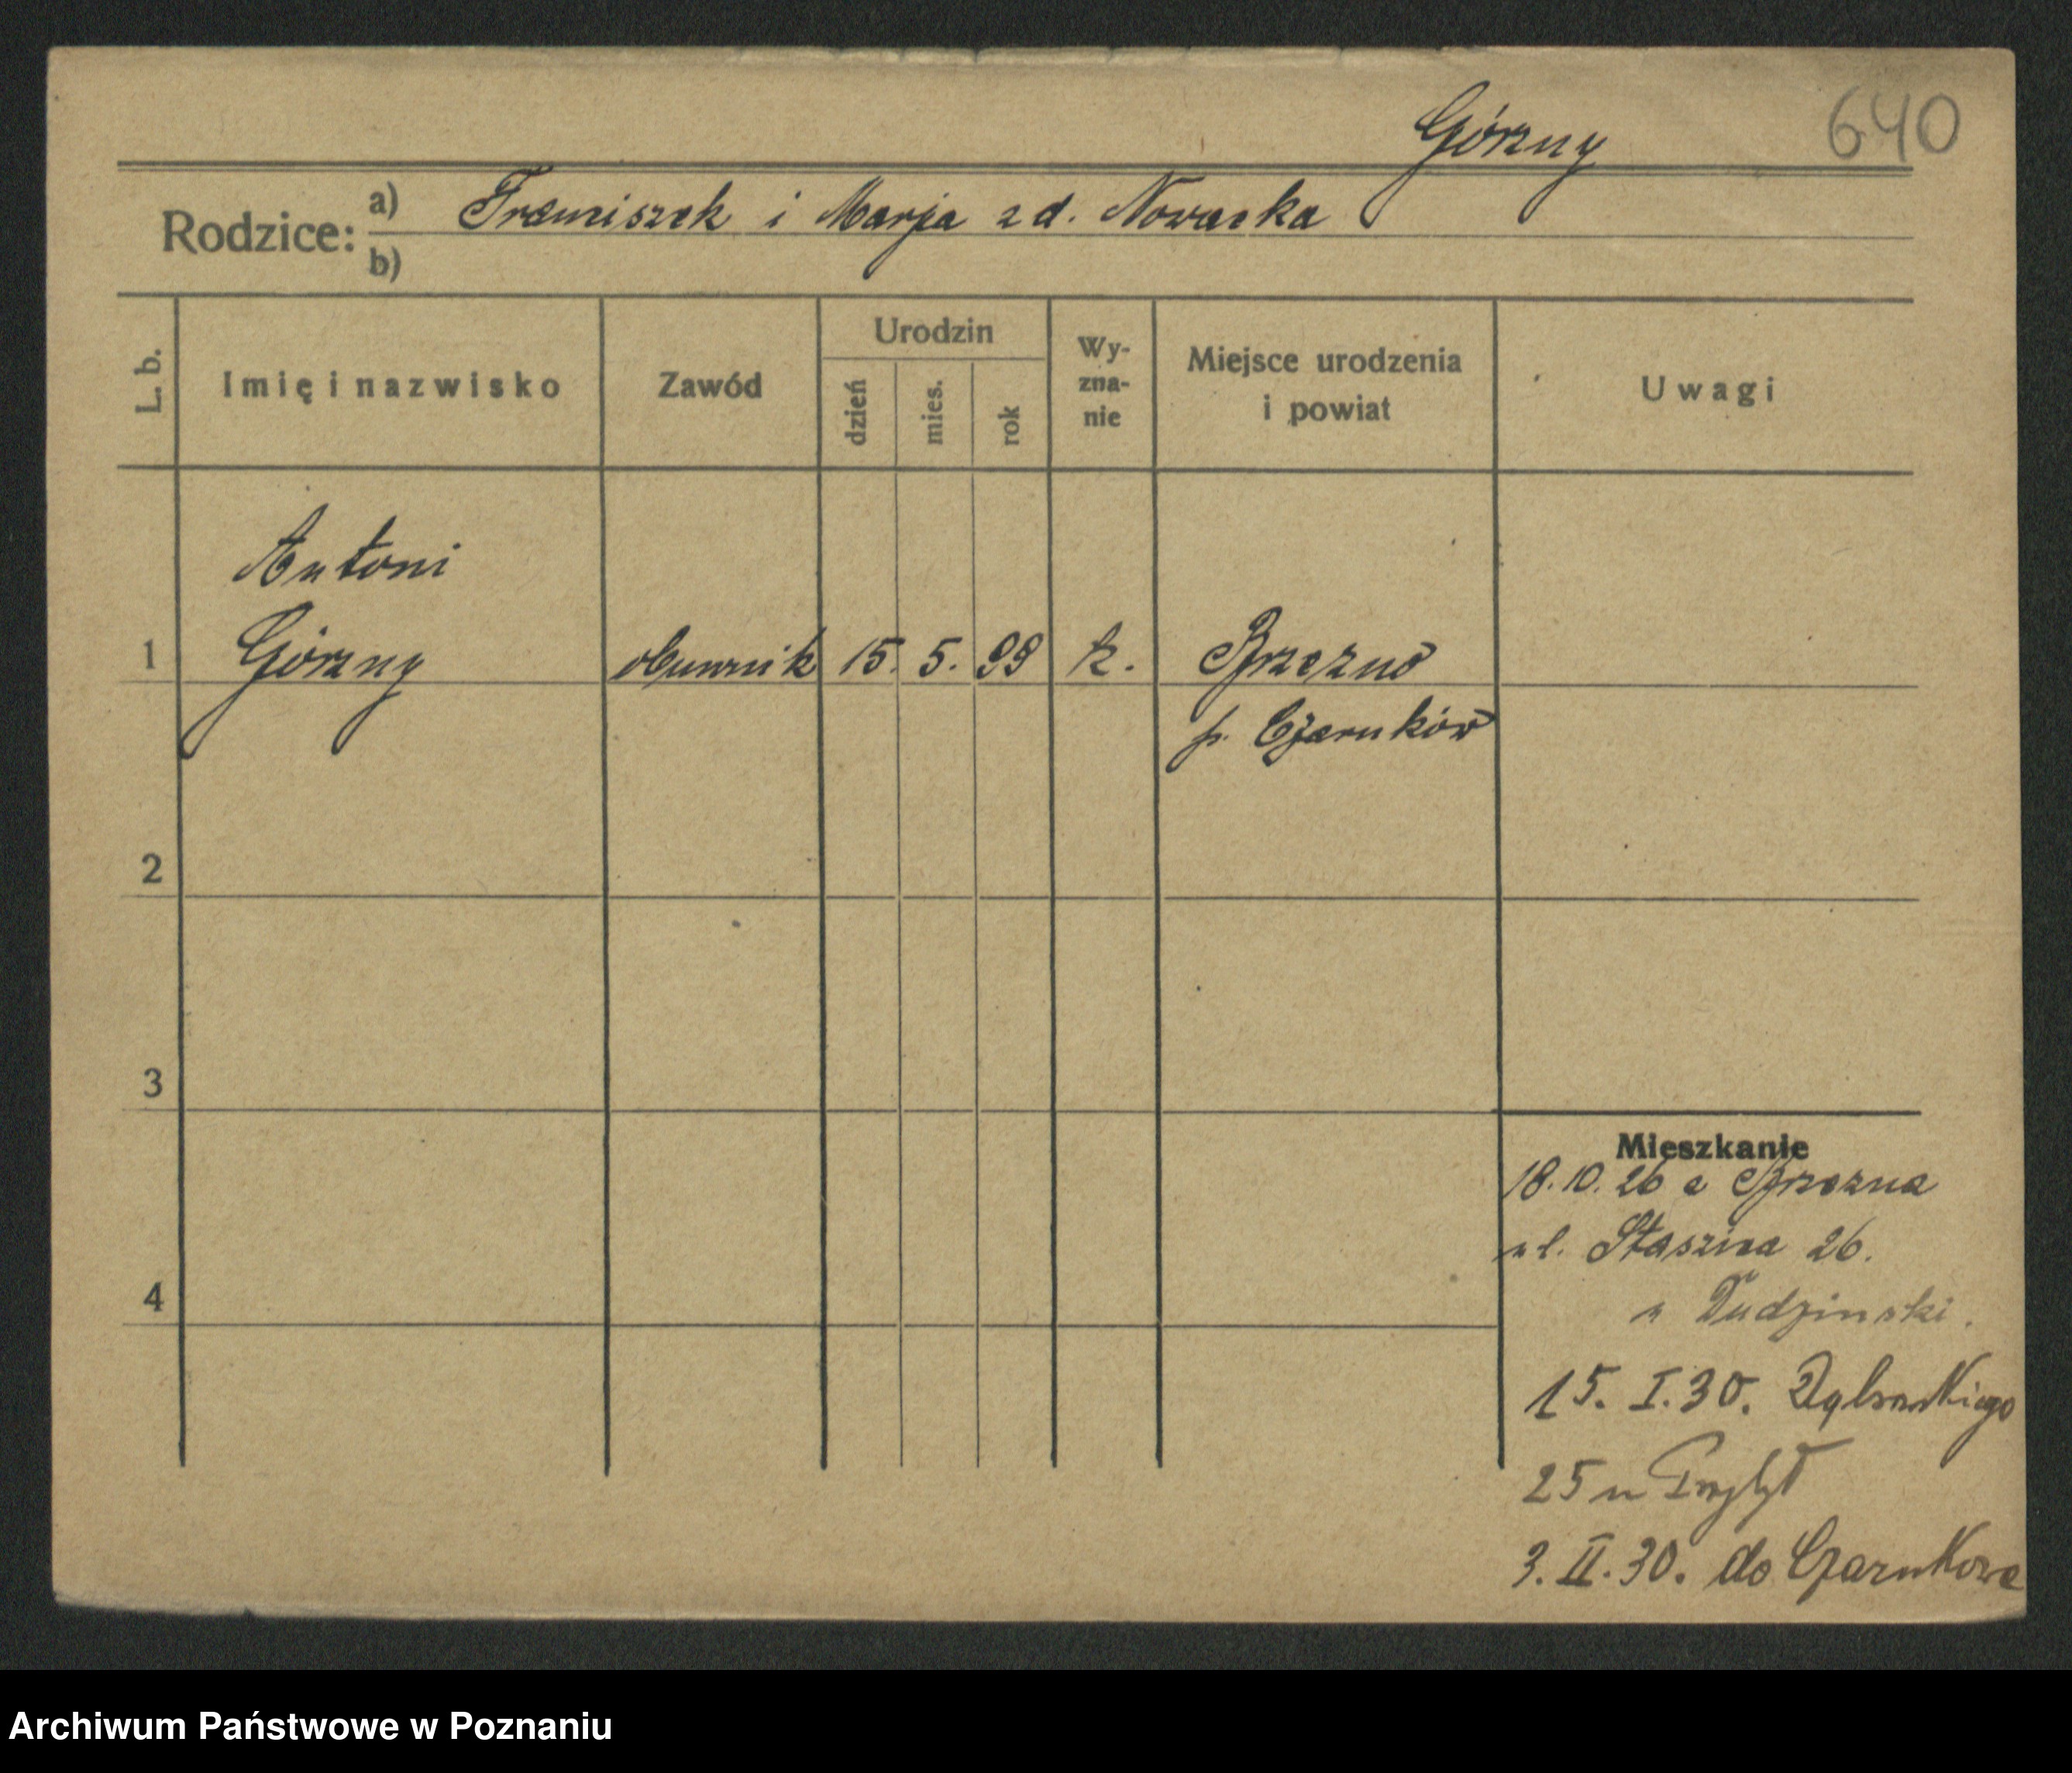 Górzny
640
Rodzice: a) Franciszek i Marja zd. Nowacka
b)
L. b.
Imię i nazwisko
Zawód
Urodzin
dzień
mies.
rok
Wy-
zna-
nie
Miejsce urodzenia
i powiat
Uwagi
Antoni
1 Górzny 15. 5. 99 k. Brzezno
p. Czarnków
2
3
4
Mieszkanie
18.10.26 z Brzezna
ul. Staszica 26.
u Dudzinski.
15. I. 30. Dąbrowskiego
25 u
3. II. 30. do Czarnkowa
Archiwum Państwowe w Poznaniu